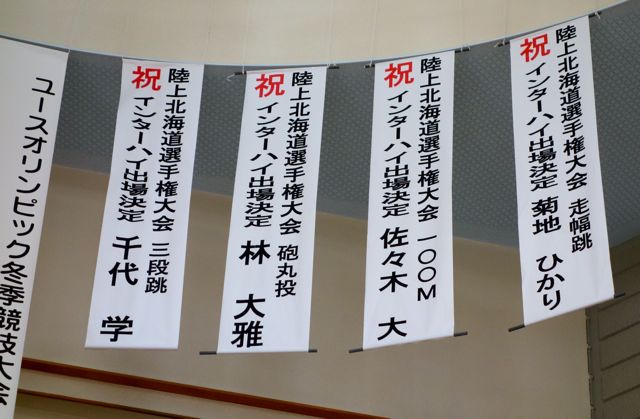 ユースオリンピック冬季競技大会
陸上北海道選手権大会 三段跳
祝 インターハイ出場決定 千代 学
陸上北海道選手権大会 砲丸投
祝 インターハイ出場決定 林 大雅
陸上北海道選手権大会 一〇〇M
祝 インターハイ出場決定 佐々木 大
陸上北海道選手権大会 走幅跳
祝 インターハイ出場決定 菊地 ひかり